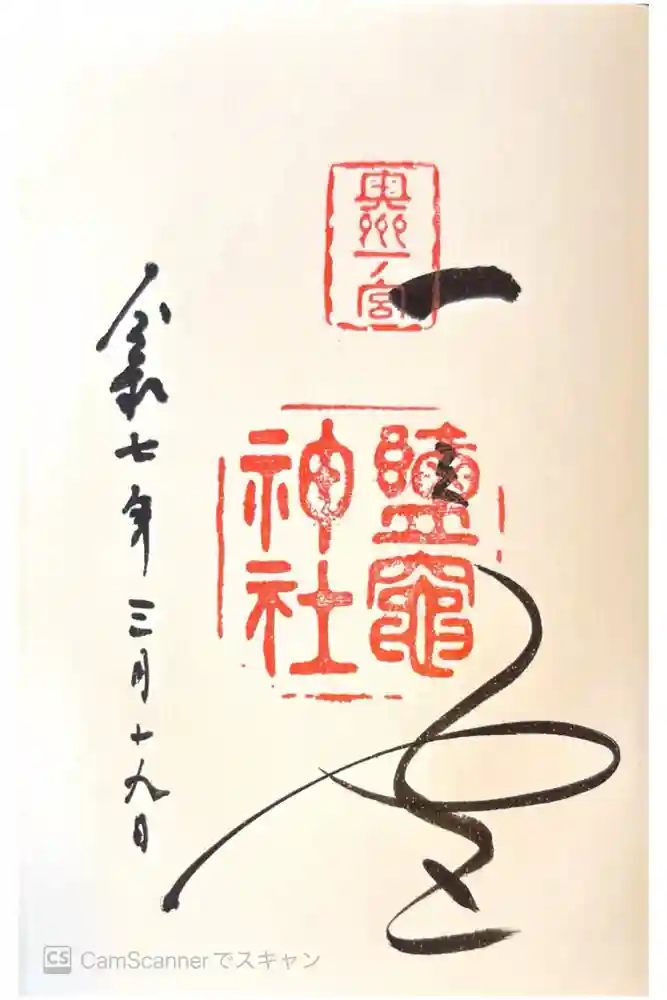 奥州一ノ宮
一之宮
鹽竈
神社
令和七年三月十九日
CS CamScannerでスキャン